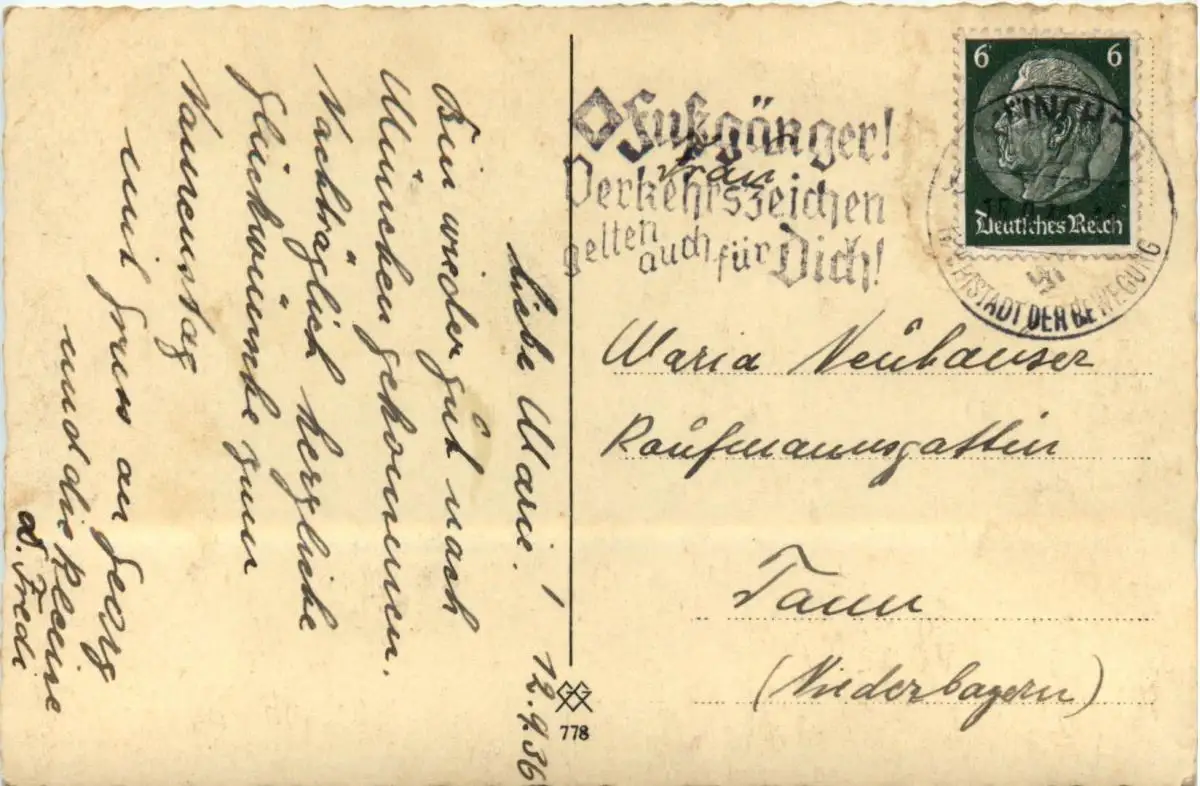 Liebe Marie! 12.9.36
Bin wieder gut nach
München gekommen.
Nachträglich herzliche
Glückwünsche zum
Namenstag
und Gruss an
und die Kleine
D. Fredi
Fußgänger!
Verkehrszeichen
gelten auch für Dich!
6 6
Deutsches Reich
MÜNCHEN
HAUPTSTADT DER BEWEGUNG
Frau
Maria Neuhauser
Kaufmannsgattin
Tann
(Niederbayern)
778